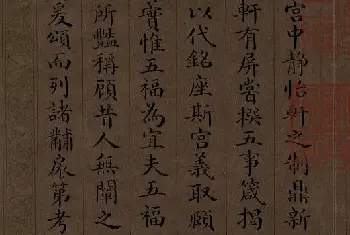 宮中静怡軒之制鼎新
軒有屏嘗撰五事箴揭
以代銘座斯宮義取頤
賓惟五福為宜夫五福
所豔稱顧昔人無闡之
爰頌而列諸黼扆第考